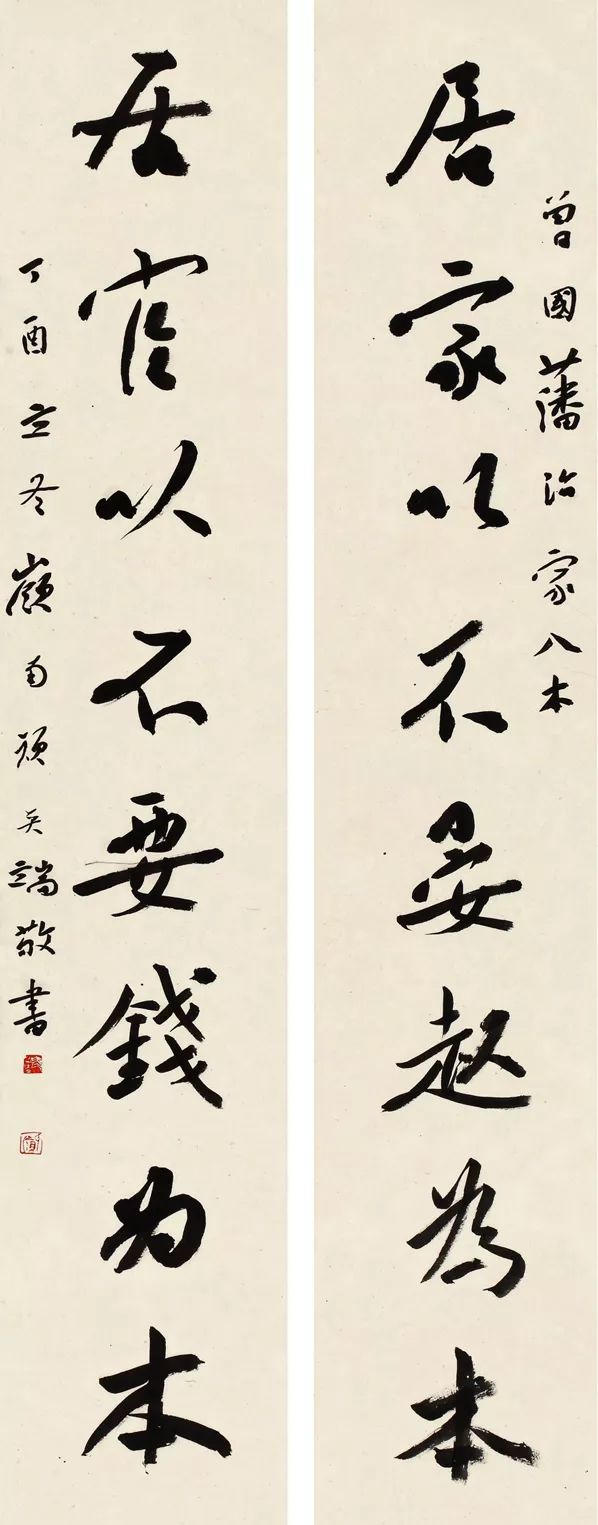 曾國藩治家八本
居家以不晏起為本
居官以不要錢为本
丁酉立冬嶺南 端敬書